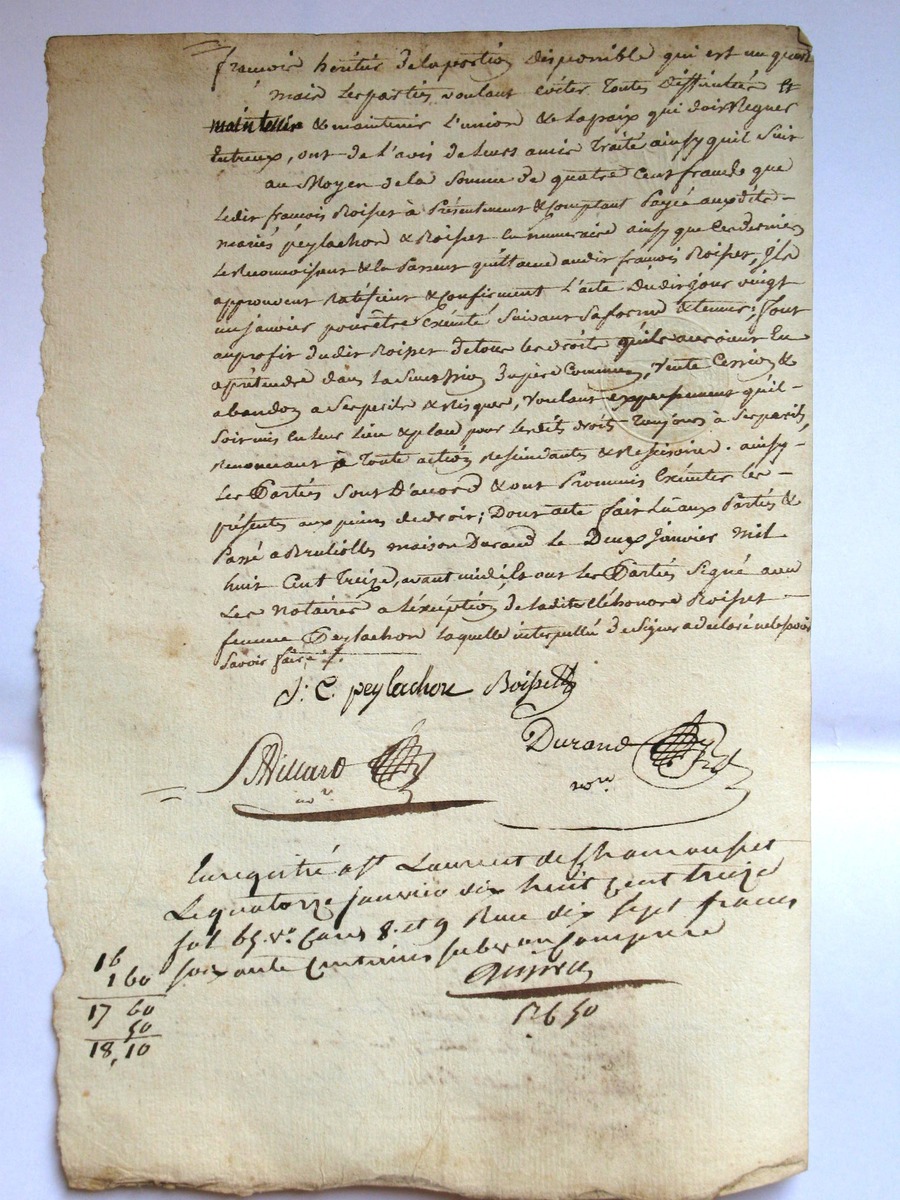 françois héritier de la portion disponible qui est un quart
mais les parties voulant éviter toutes difficultés et
maintenir & maintenir l'union & la paix qui doit Regner
Entreux, ont de l'avis de leurs amis traité ainsy quil suit
au Moyen de la Somme de quatre Cent francs que
Ledit françois Boisset à Présentement & Comptant Payée auxdits
mariés peylachon & Boisset En numeraire ainsy que Ces derniers
Le Reconnoissent & En Passent quittance audit françois Boisset, Ils
approuvent Ratifient & Confirment l'acte dudit jour vingt
un janvier pour être Exécuté suivant sa forme & teneur;
au profit dudit Boisset de tous les droits quils auroient Eu
a prétendre dans la Succession du père Commun, Vente Cession &
abandon a Ses perils & Risques, Voulant expressement qu'il
soit mis En leur Lieu & place pour lesdits droits toujours à Ses perils,
Renonceant à toute action Rescindantes & Rescisoire. ainsy
Les Parties Sont D'accord & ont Promis Exécuter les
présentes aux peines de droit; Dont acte fait Lu aux Parties &
Passé a Brullioles maison Durand le Deux Janvier mil
huit Cent Treize, avant midi, & ont les Parties Signé avec
Les Notaires a l'éxception de ladite Eléhonore Boisset
femme Peylachon laquelle interpellé de Signer a déclaré ne le savoir
Savoir faire ./.
J. C. peylachon Boisset
Villard Durand
nre nore
Enregistré a St Laurent de Chamousset
Le quatorze janvier dix huit Cent treize
fol 65 vo Cases 8 et 9 Reçu dix Sept francs
soixante Centimes subvon Comprise
16
1 60
17 60
50
18,10